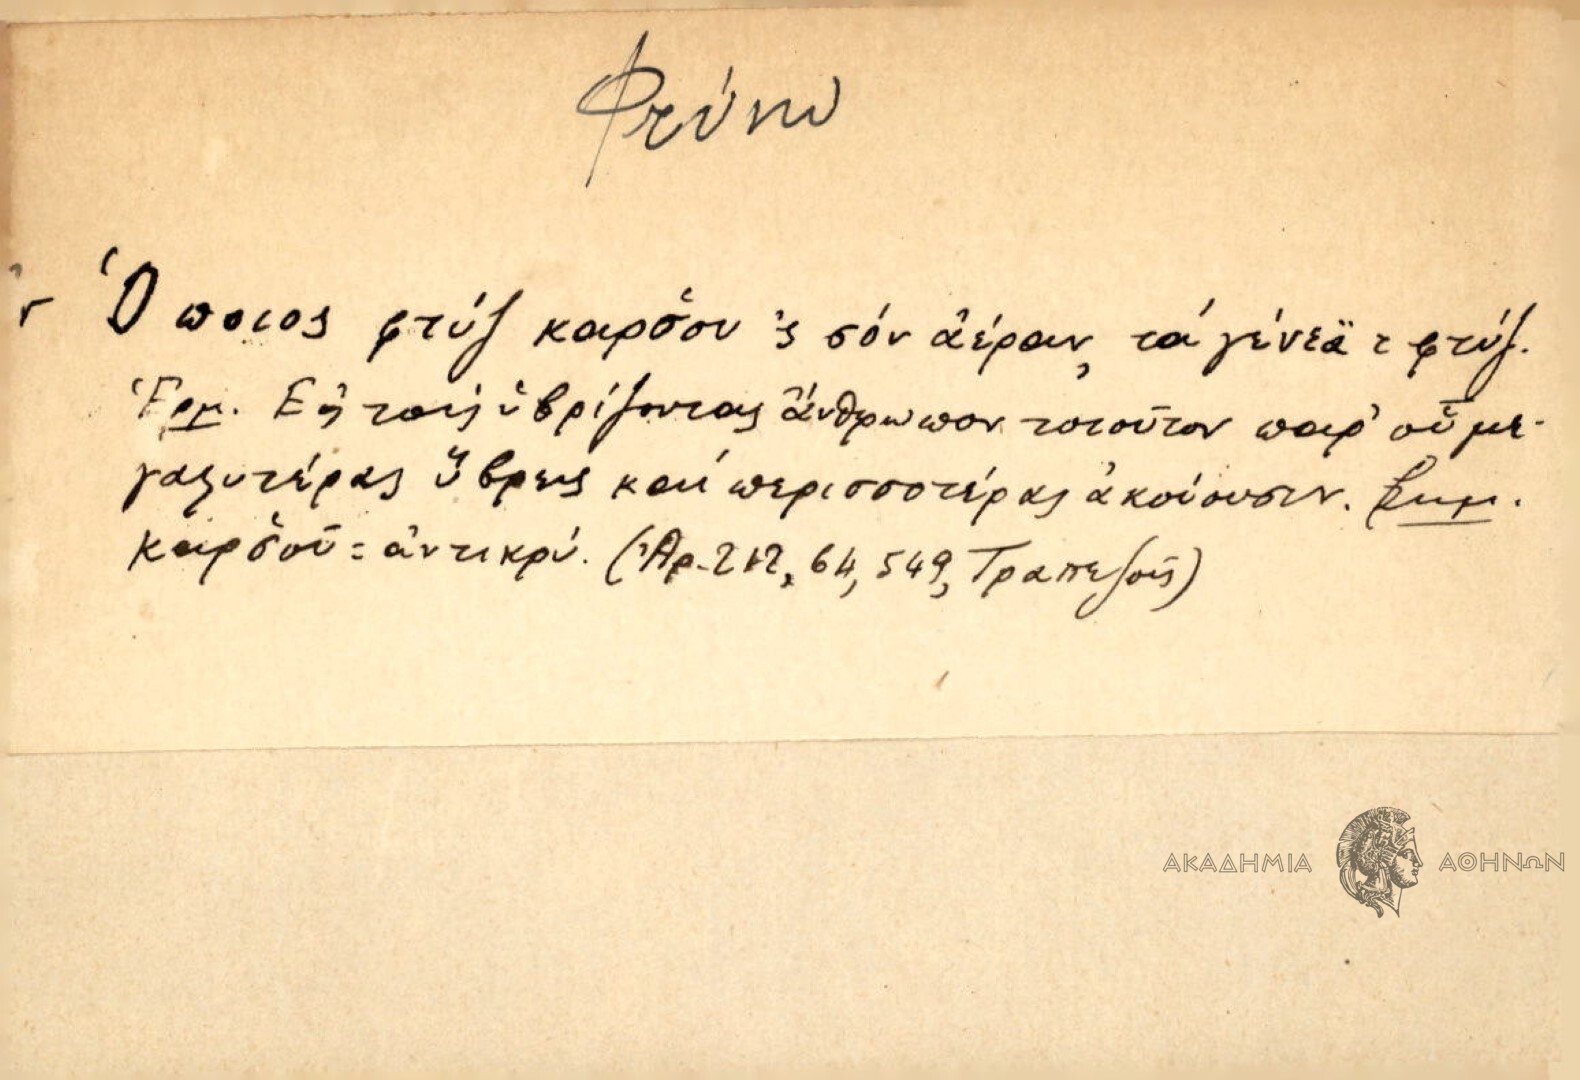 Φτύνω
Ὁ ποιος φτύζ καρσ̌ου 'ς σόν ἀέραν, τά γένεϊα τ φτύζ.
Ἑρμ. Εἰς τούς ὑβρίζοντας ἄνθρωπον τοιοῦτον παρ' οὗ με-
γαλυτέρας ὕβρεις καί περισσοτέρας ἀκούουσιν. Σημ.
καρσ̌οῦ = ἀντικρύ. (Ἀρ. 212, 64, 549, Τραπεζοῦς)
ΑΚΑΔΗΜΙΑ ΑΘΗΝΩΝ